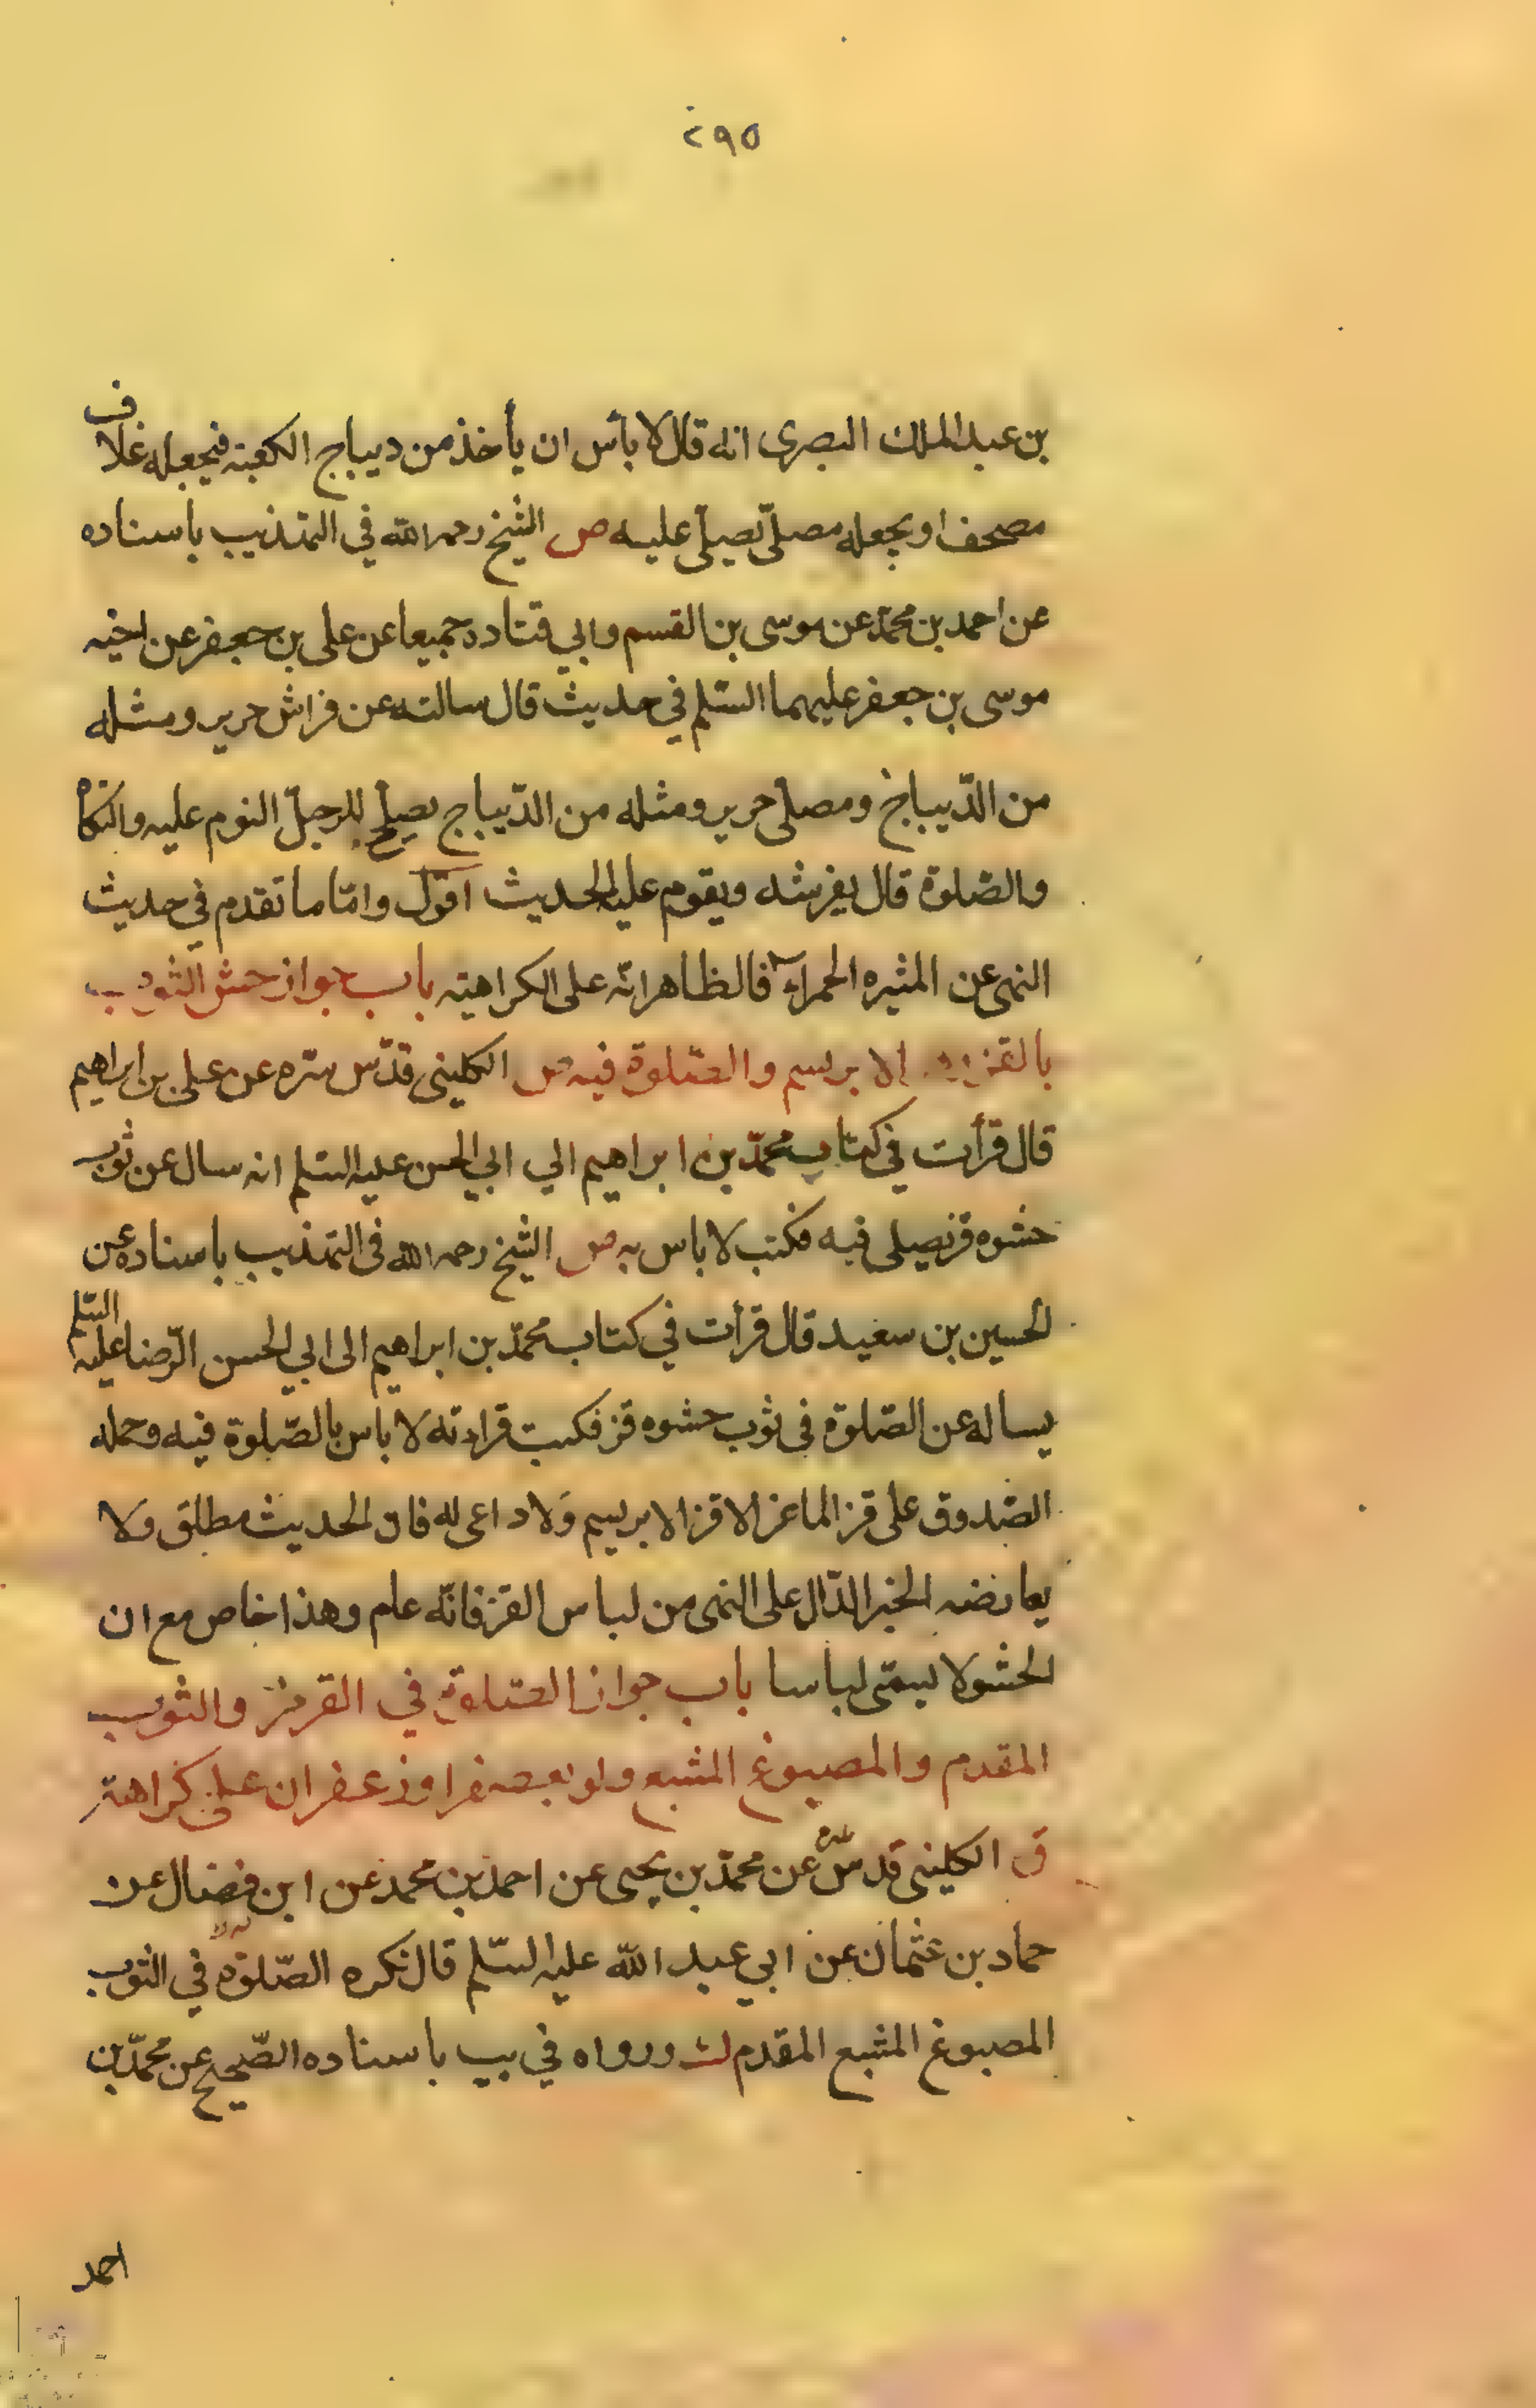 ٢٩٥
بن عبد الملك البصرى انه قال لا بأس ان يأخذ من ديباج الكعبة فيجعله غلاف
مصحف او يجعله مصلّى يصلّى عليه ص الشيخ رحمه الله في التهذيب باسناده
عن احمد بن محمّد عن موسى بن القسم وابي قتاده جميعا عن على بن جعفر عن اخيه
موسى بن جعفر عليهما السّلم في حديث قال سالته عن فراش حرير ومثله
من الدّيباج ومصلّى حرير ومثله من الدّيباج يصلح للرجل النوم عليه والتكاه
والصّلوة قال يفرشه ويقوم عليه الحديث اقول وامّا ما تقدم في حديث
النهى عن المثيره الحمراء فالظاهر انّه على الكراهية باب جواز حشى الثوب
بالقز الابريسم والصّلوة فيه ص الكلينى قدّس سّره عن على بن ابراهيم
قال قرأت في كتاب محمّد بن ابراهيم الي ابي الحسن عليه السّلم انه سال عن ثوب
حشوه قز يصلى فيه فكتب لا باس به ص الشيخ رحمه الله في التهذيب باسناده عن
الحسين بن سعيد قال قرأت في كتاب محمّد بن ابراهيم الى ابي الحسن الرّضا عليه السّلم
يساله عن الصّلوة في ثوب حشوه قز فكتب قراءته لا باس بالصّلوة فيه وحمله
الصّدوق على قز الماعز لا قز الابريسم ولا داعى له فان الحديث مطلق ولا
يعارضه الخبر الدّال على النهى من لباس القز فانّه عام وهذا خاص مع ان
الحشو لا يسمّى لباسا باب جواز الصّلوة في القرمز والثوب
المقدم والمصبوغ المشبع ولو بعصفر او زعفران على كراهة
ق الكلينى قدس سره عن محمّد بن يحيى عن احمد بن محمد عن ابن فضال عن
حماد بن عثمان عن ابي عبد الله عليه السّلم قال تكره الصّلوة في الثوب
المصبوغ المشبع المقدم لث ورواه في يب باسناده الصّحيح عن محمّد بن
احمد